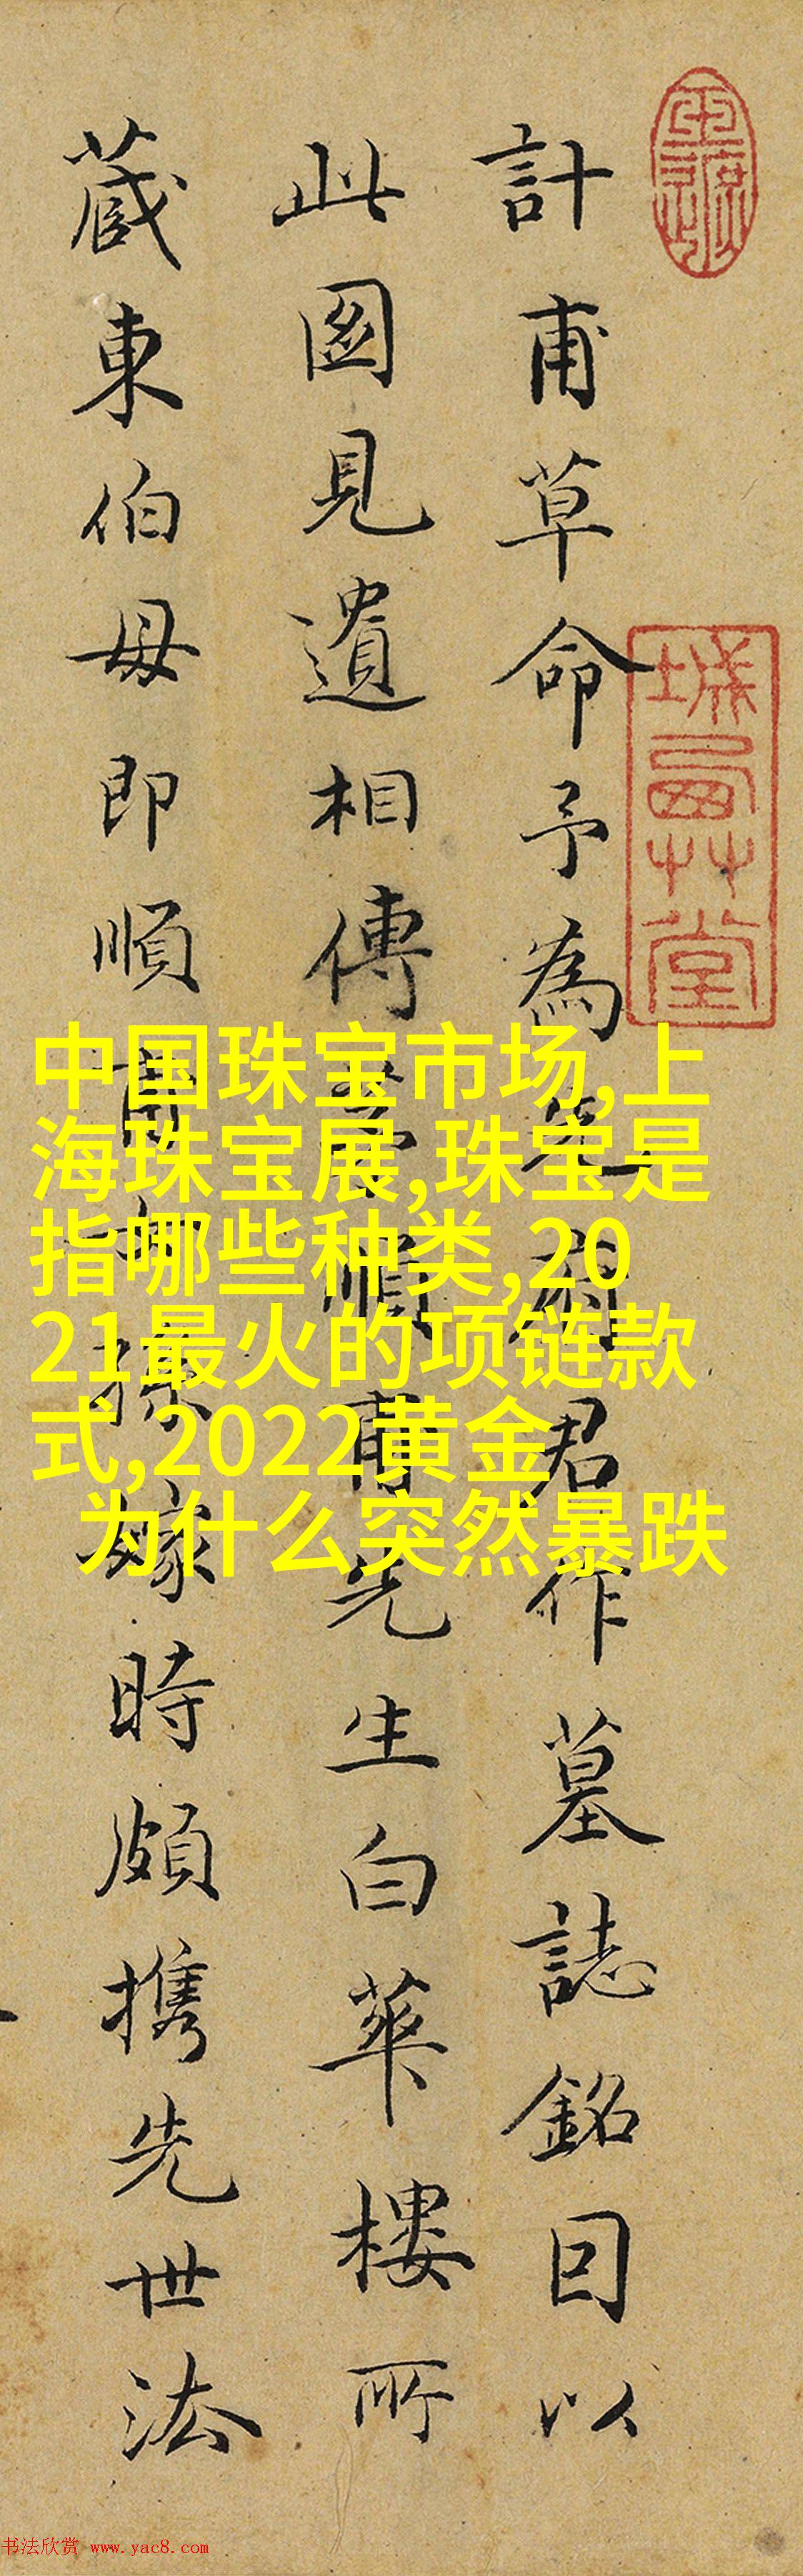 計甫草命予為先嗣君作墓誌銘回以
此圖見遺相傳為順甫先生白華樓所
蔵東伯母即順甫女孫嫁時頗攜先世法
城曲草堂
中国珠宝市场,上
海珠宝展,珠宝是
指哪些种类,20
21最火的项链款
式,2022黄金
为什么突然暴跌
书法欣赏 www.yac8.com